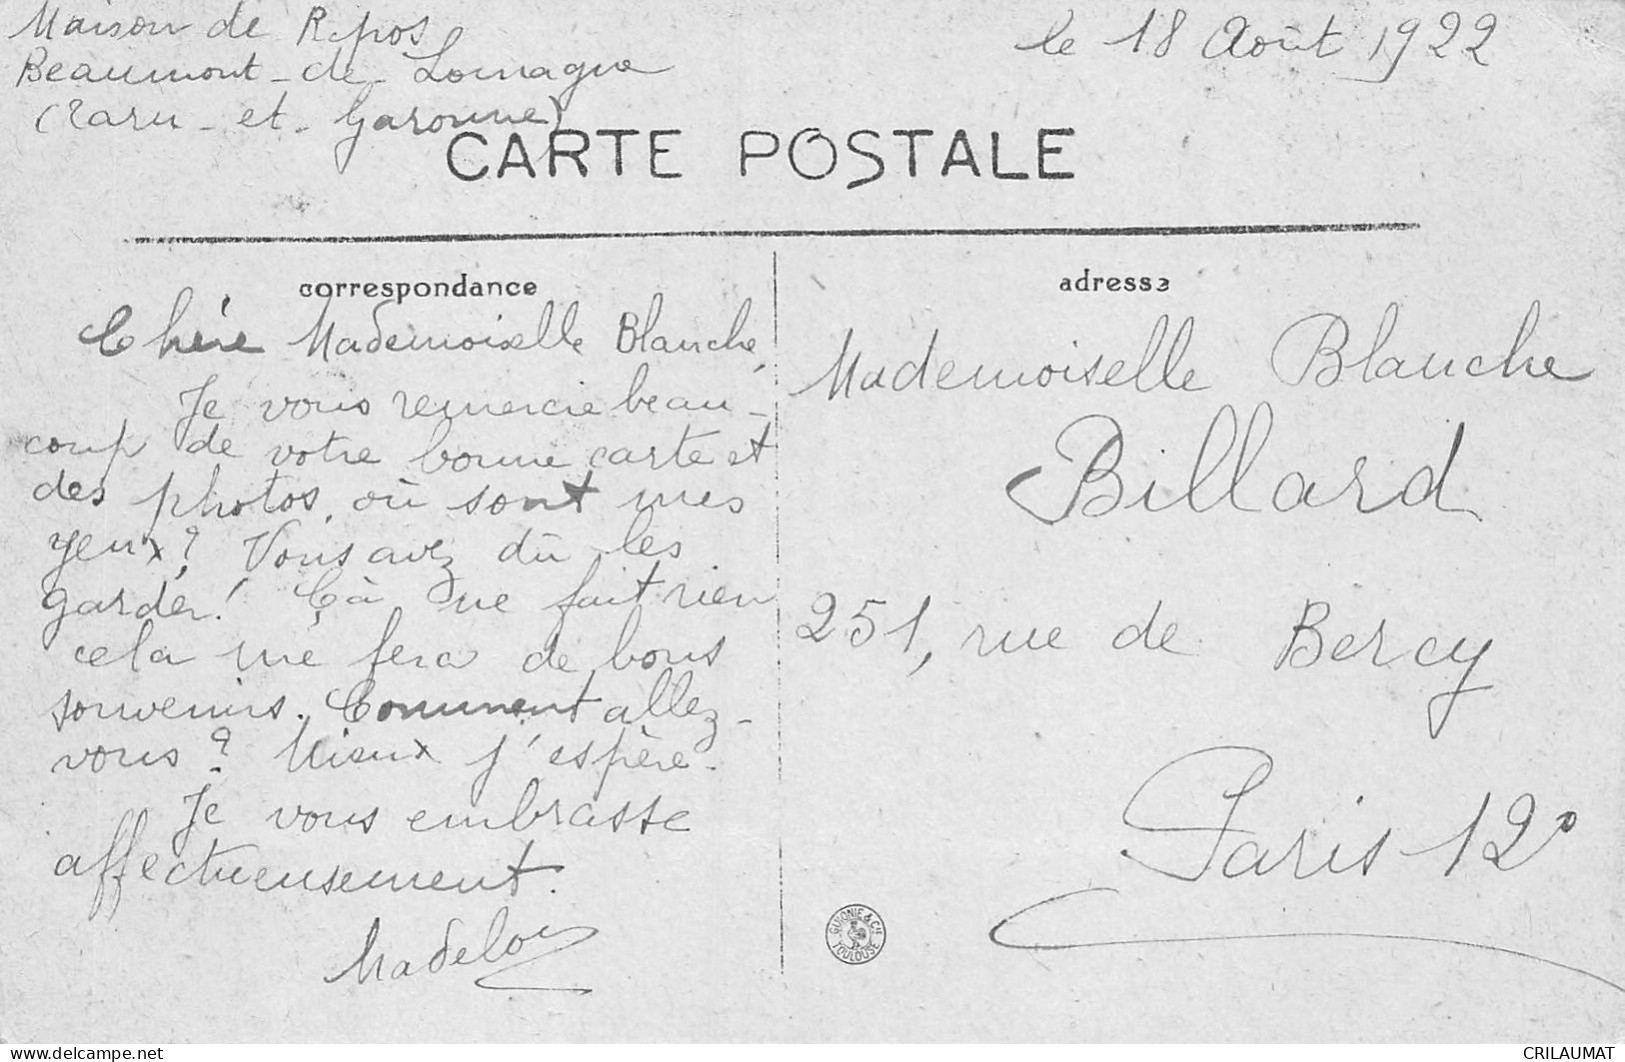 Maison de Repos
Beaumont-de-Lomagne
(Tarn-et-Garonne)
le 18 Août 1922
CARTE POSTALE
correspondance
Chère Mademoiselle Blanche,
Je vous remercie beau-
coup de votre bonne carte et
des photos, où sont mes
yeux? Vous avez dû les
garder! Çà ne fait rien
cela me fera de bons
souvenirs. Comment allez-
vous? Mieux j'espère.
Je vous embrasse
affectueusement.
Madelon
adresse
Mademoiselle Blanche
Billard
251, rue de Bercy
Paris 12e
GUIONIE & Cie
TOULOUSE
www.delcampe.net
CRILAUMAT